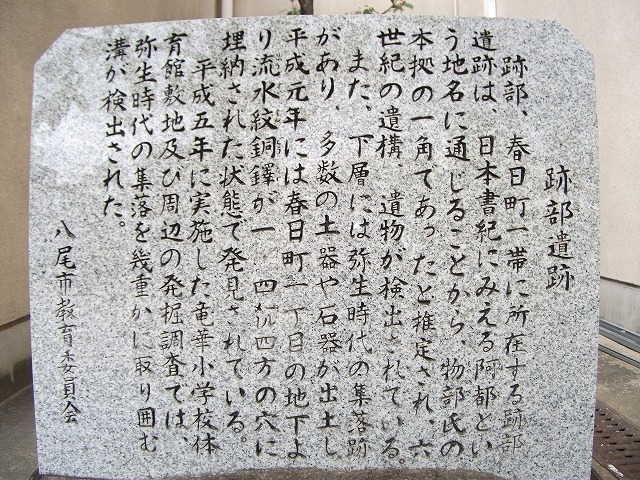 跡部遺跡
跡部、春日町一帯に所在する跡部
遺跡は、日本書紀にみえる阿都とい
う地名に通じることから、物部氏の
本拠の一角であったと推定され、六
世紀の遺構、遺物が検出されている。
また、下層には弥生時代の集落跡
があり、多数の土器や石器が出土し
平成元年には春日町一丁目の地下よ
り流水紋銅鐸が一・四㍍四方の穴に
埋納された状態で発見されている。
平成五年に実施した竜華小学校体
育館敷地及び周辺の発掘調査では、
弥生時代の集落を幾重かに取り囲む
溝が検出された。
八尾市教育委員会